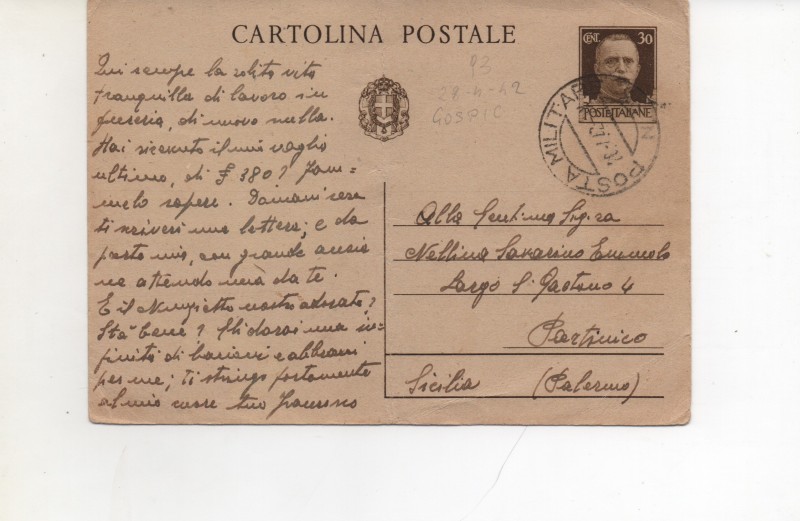 CARTOLINA POSTALE
CENT. 30
POSTE ITALIANE
POSTA MILITARE
93
28-4-42
GOSPIC
Qui sempre la solita vita
tranquilla di lavoro in
fureria, di nuovo nulla.
Hai ricevuto il mio vaglia
ultimo, di £ 380? Fam=
melo sapere. Domani sera
ti scriverò una lettera; e da
parte mia, con grande ansia
ne attendo una da te.
E il Nungietto nostro adorato?
Sta bene? Gli darai una in=
finità di bacioni e abbracci
per me; ti stringo fortemente
al mio cuore tuo
Alla Gentma Sig.ra
Nellina Savarino Emmolo
Largo S. Gaetano 4
Partinico
Sicilia (Palermo)